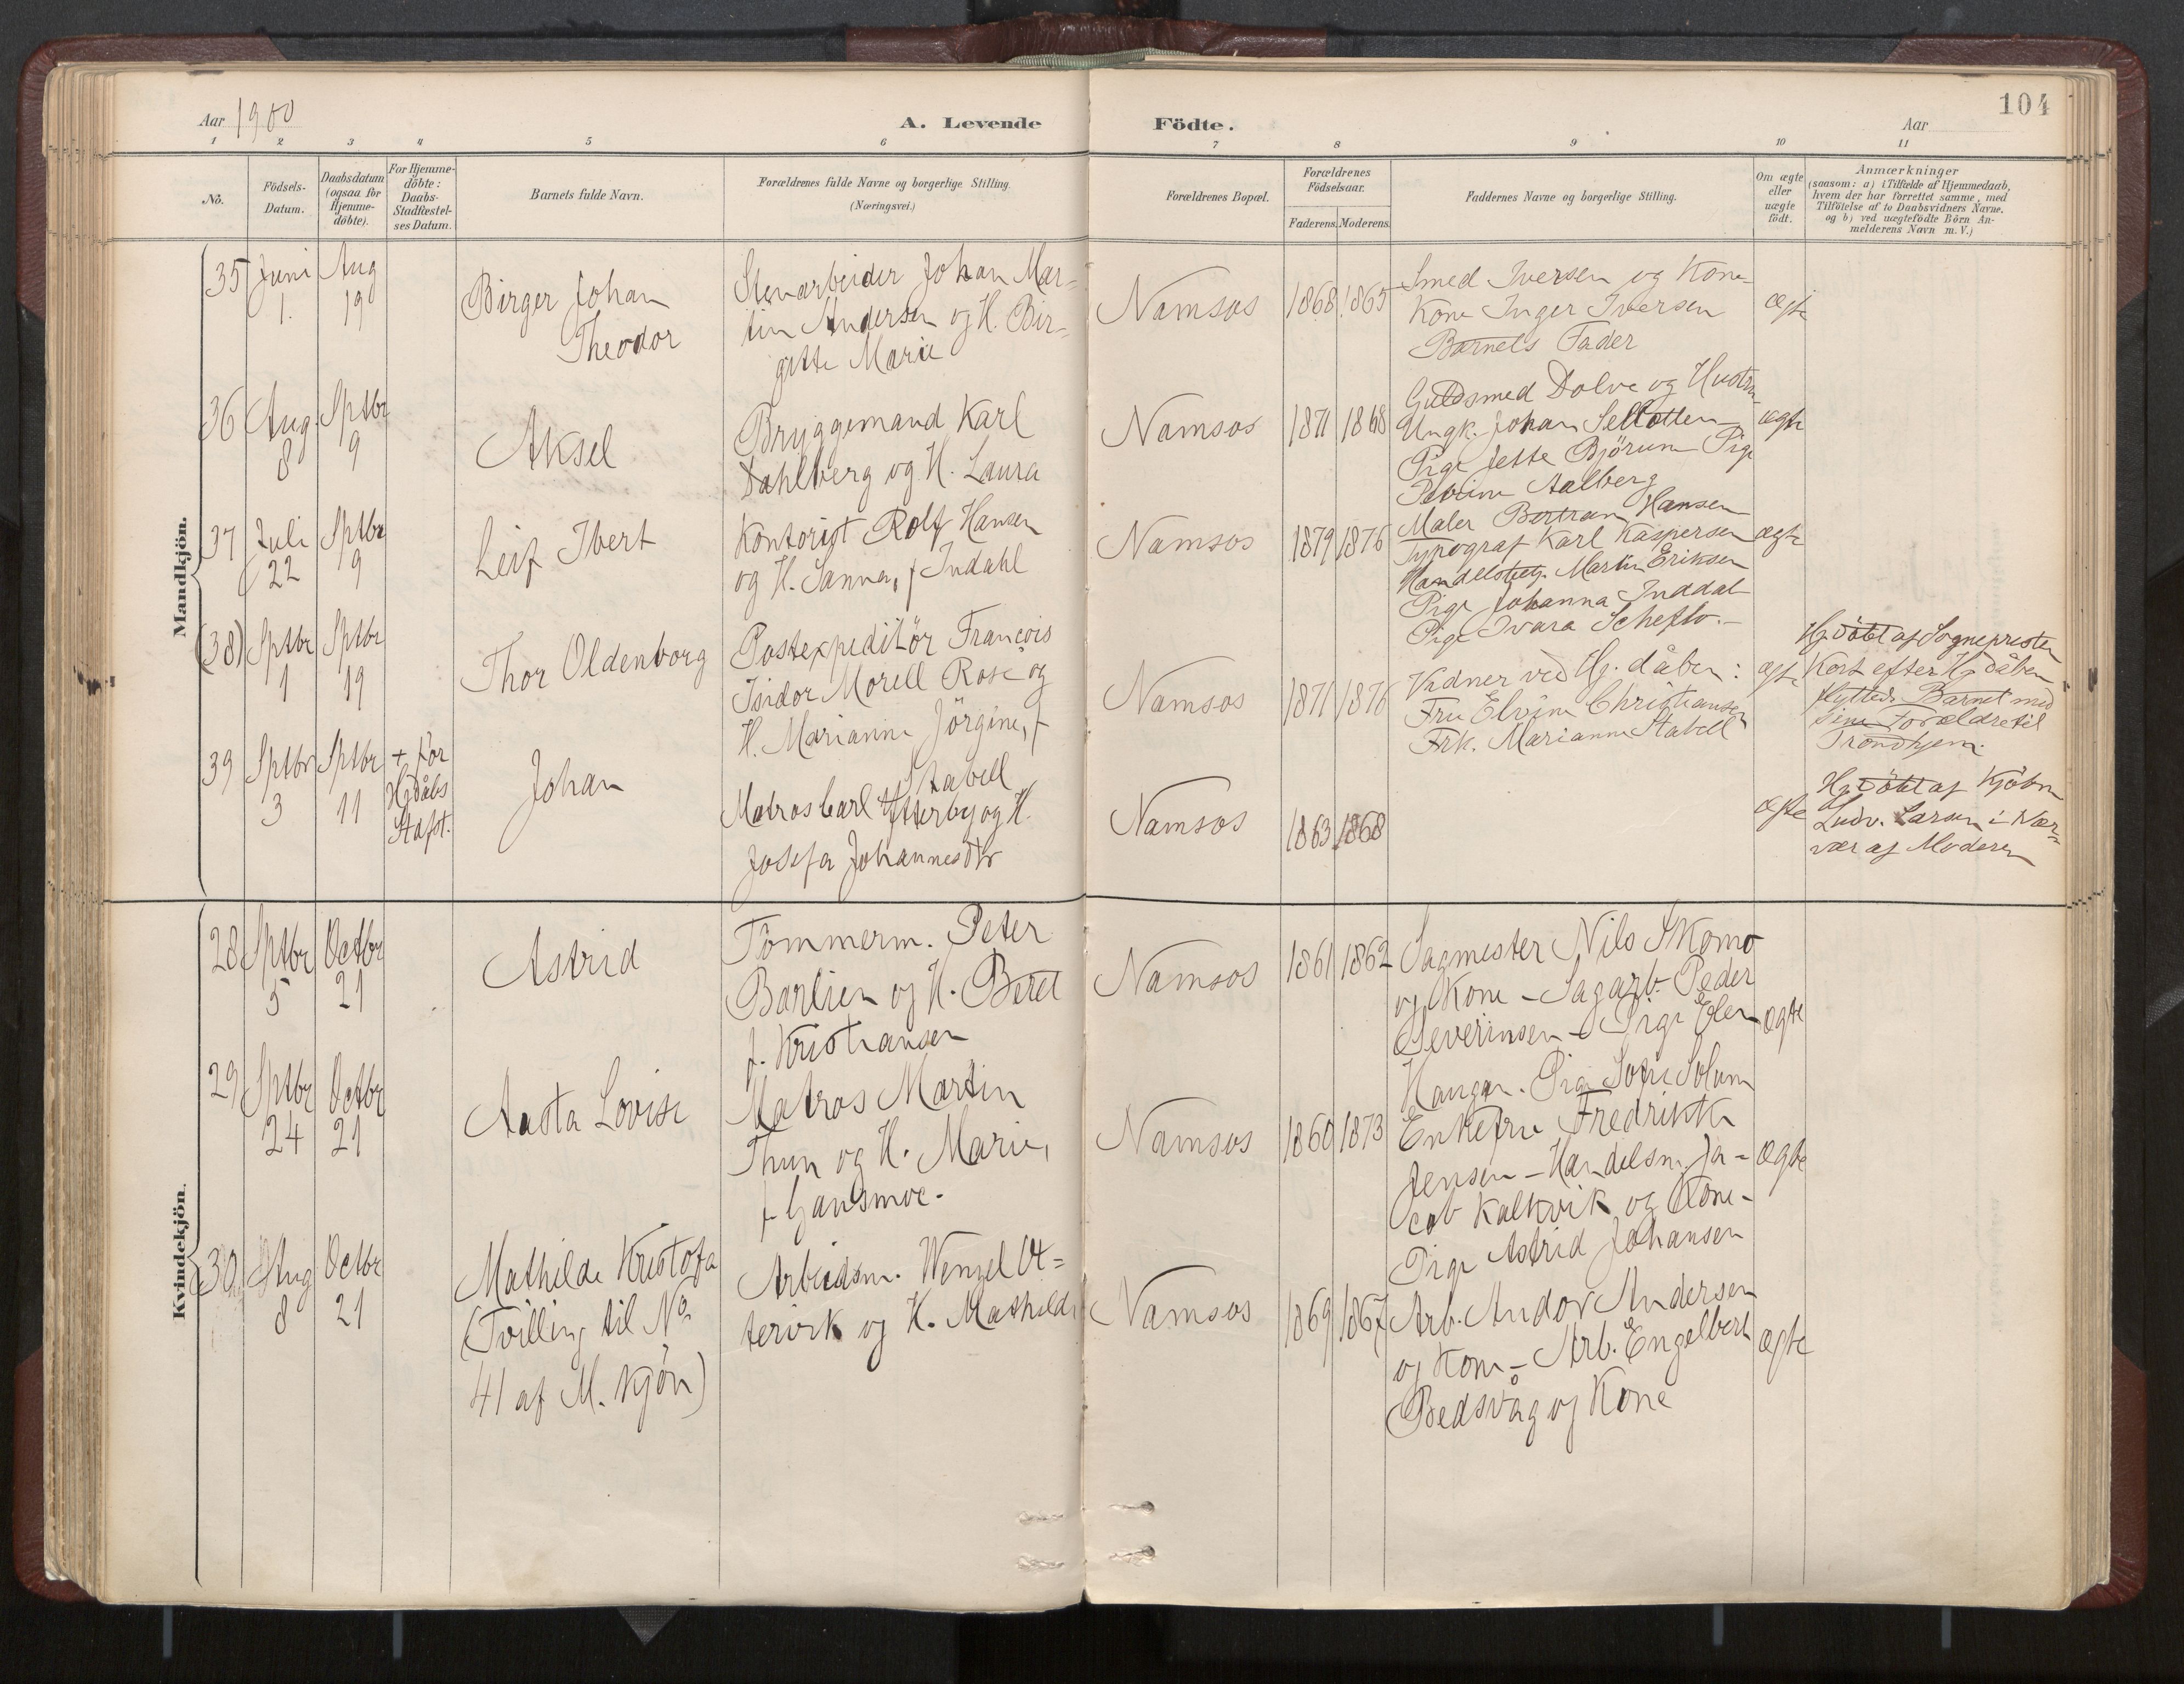 104
Aar 1900
A. Levende Födte.
Aar
1 2 3 4 5 6 7 8 9 10 11
No.
Födsels-
Datum.
Daabsdatum
(ogsaa for
Hjemme-
döbte).
For Hjemme-
döbte:
Daabs-
Stadfæstel-
ses Datum.
Barnets fulde Navn.
Forældrenes fulde Navne og borgerlige Stilling.
(Næringsvei.)
Forældrenes Bopæl.
Forældrenes
Födselsaar.
Faderens. Moderens.
Faddernes Navne og borgerlige Stilling.
Om ægte
eller
uægte
födt.
Anmærkninger
(saasom: a) i Tilfælde af Hjemmedaab,
hvem der har forrettet samme, med
Tilföielse af to Daabsvidners Navne.
og b) ved uægtefödte Börn An-
melderens Navn m. V.)
Mandkjön.
35
Juni
1.
Aug
19
Birger Johan
Theodor
Stenarbeider Johan Mar-
tin Andersen og H. Bir-
gitte Marie
Namsos
1868 1865
Smed Iversen og Kone
Kone Inger Iversen
Barnets Fader
ægte
36
Aug.
8
Sptbr
9
Aksel
Bryggemand Karl
Dahlberg og H. Laura
Namsos
1871 1868
Guldsmed Dolve og Hustru
Ungk. Johan
Pige Jette Bjørum Pige
Aalberg
ægte
37
Juli
22
Sptbr
9
Leif Ibert
Kontorist Rolf Hansen
og H. Sanna, f Indahl
Namsos
1879 1876
Maler Bertram Hansen
Typograf Karl Kaspersen
Handelsbetj. Martin Eriksen
Pige Johanna Inddal
Pige Ivara Scheflo.-
ægte
(38)
Sptbr
1
Sptbr
19
Thor Oldenborg
Postexpeditör François
Isidor Morell Rose og
H. Marianne Jörgine, f
Stabell
Namsos
1871 1876
Vidner ved Hj. dåben:
Fru Elvine Christiansen
Frk. Marianne Stabell
ægte
Hj döbt af Sognepresten
Kort efter Hj dåben
flytted. Barnet med
sine Forældre til
Trondhjem.
39
Sptbr
3
Sptbr
11
+ før
Hj dåbs
Stafst.
Johan
Matros Carl Ytterby og H.
Josefa Johannesdtr
Namsos
1863 1868
ægte
Hj döbt af Kjöbm
Ludv. Larsen i Nær-
vær af Moderen
Kvindekjön.
28
Sptbr
5
Octbr
21
Astrid
Tömmerm. Peter
Barlien og H. Beret
f. Kristiansen
Namsos
1861 1862
Sagmester Nils Skomo
og Kone - Sagarb. Peder
Severinsen - Pige Elen
Haugan. Pige Sofie Solum
ægte
29
Sptbr
24
Octbr
21
Aasta Lovise
Matros Martin
Thun og H. Marie,
f Gansmoe.
Namsos
1860 1873
Enkefru Fredrikke
Jensen - Handelsm. Ja-
cob Kalkvik og Kone -
Pige Astrid Johansen
ægte
30
Aug
8
Octbr
21
Mathilde Kristofa
(Tvilling til No
41 af M. Kjøn)
Arbeidsm. Wenzel Ot-
tervik og H. Mathilde
Namsos
1869 1867
Arb. Andor Andersen
og Kone - Arb. Engelbert
Bedsvåg og Kone
ægte